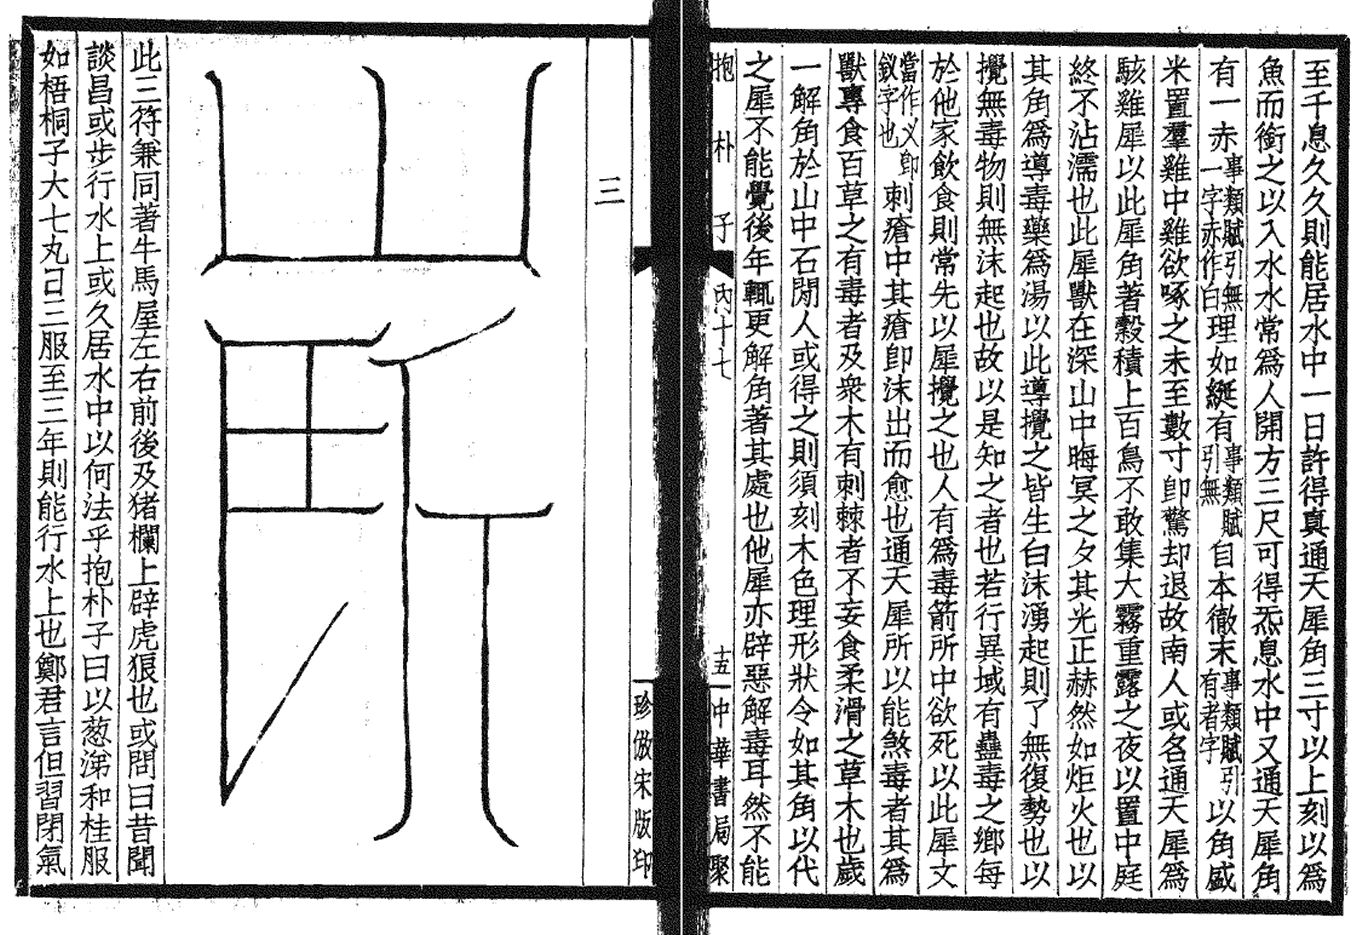 至千息久久則能居水中一日許得真通天犀角三寸以上刻以爲
魚而銜之以入水水常爲人開方三尺可得炁息水中又通天犀角
有一赤事類賦引無一字赤作白理如綖有事類賦引無自本徹末事類賦引有者字以角盛
米置羣雞中雞欲啄之未至數寸卽驚却退故南人或名通天犀爲
駭雞犀以此犀角著穀積上百鳥不敢集大霧重露之夜以置中庭
終不沾濡也此犀獸在深山中晦冥之夕其光正赫然如炬火也以
其角爲導毒藥爲湯以此導攪之皆生白沫湧起則了無復勢也以
攪無毒物則無沫起也故以是知之者也若行異域有蠱毒之鄉每
於他家飲食則常先以犀攪之也人有爲毒箭所中欲死以此犀文
釵字也當作乂卽刺瘡中其瘡卽沫出而愈也通天犀所以能煞毒者其爲
獸專食百草之有毒者及衆木有刺棘者不妄食柔滑之草木也歲
一解角於山中石閒人或得之則須刻木色理形狀令如其角以代
之犀不能覺後年輒更解角著其處也他犀亦辟惡解毒耳然不能
抱朴子 內十七 十五 中華書局聚
珍倣宋版印
三
此三符兼同著牛馬屋左右前後及猪欄上辟虎狼也或問曰昔聞
談昌或步行水上或久居水中以何法乎抱朴子曰以葱涕和桂服
如梧桐子大七丸日三服至三年則能行水上也鄭君言但習閉氣